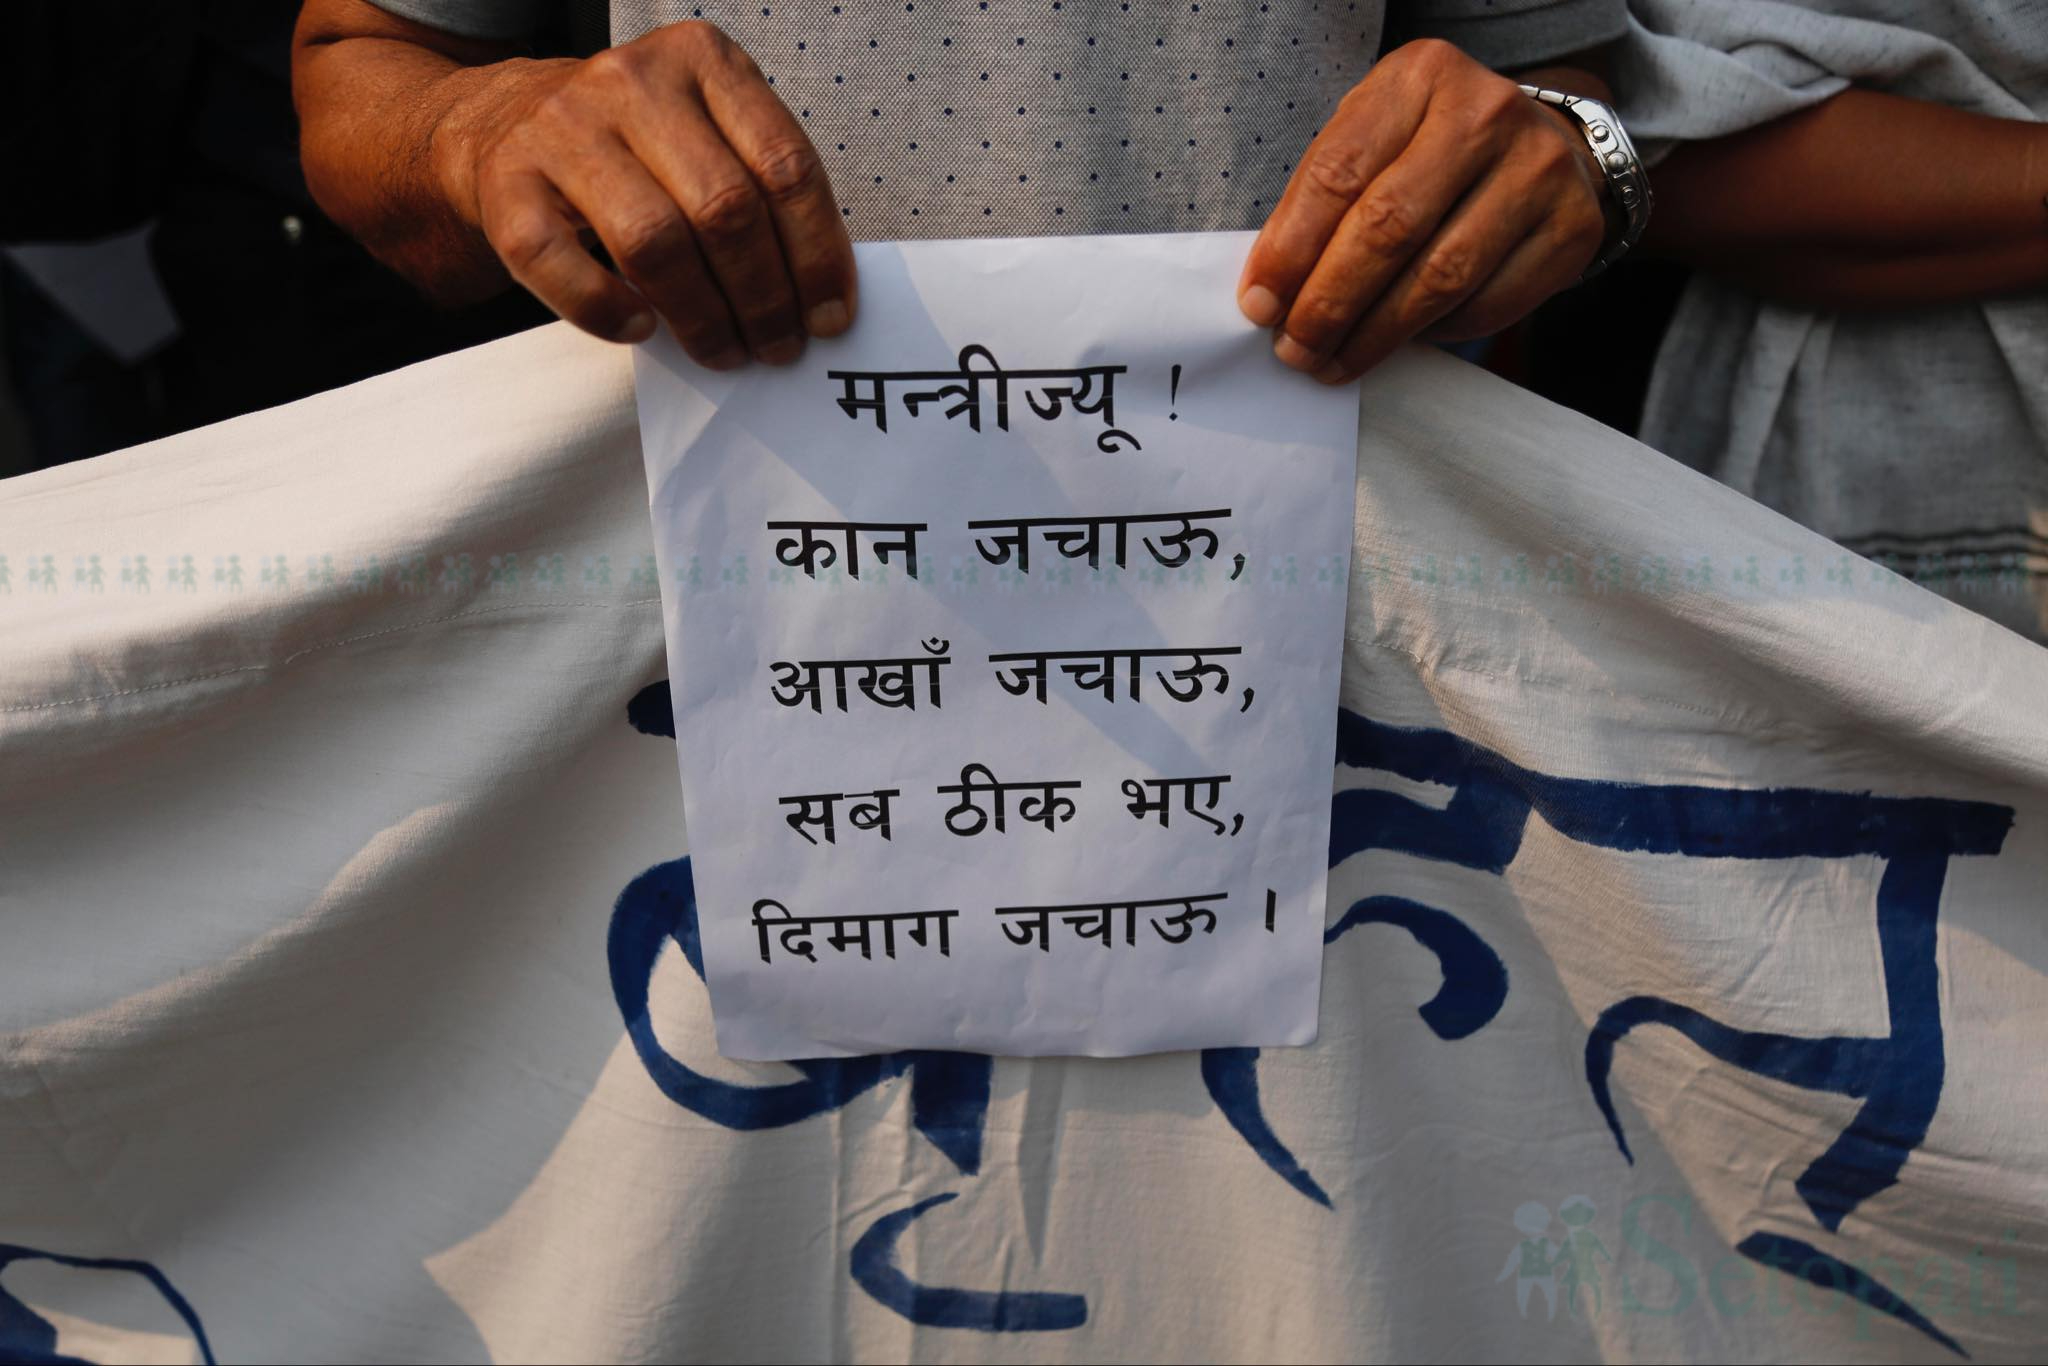 मन्त्रीज्यू !
कान जचाऊ,
आखाँ जचाऊ,
सब ठीक भए,
दिमाग जचाऊ ।
Setopati